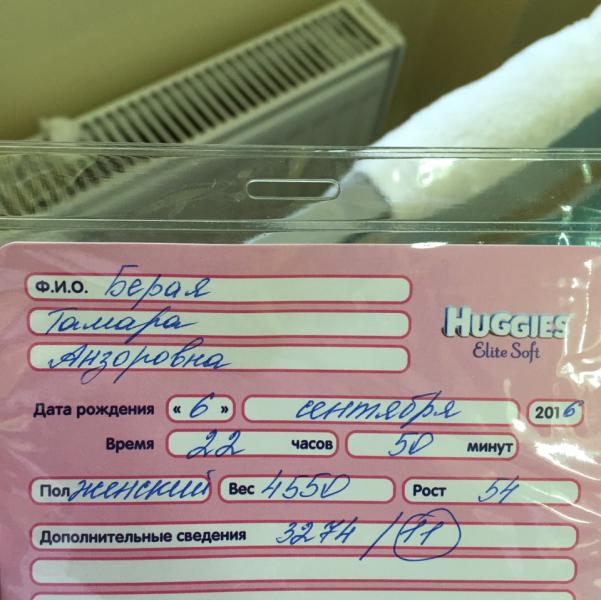 Ф.И.О. Берая
Тамара
Анзоровна
HUGGIES
Elite Soft
Дата рождения « 6 » сентября 2016
Время 22 часов 50 минут
Пол женский Вес 4550 Рост 54
Дополнительные сведения 3274 / 11